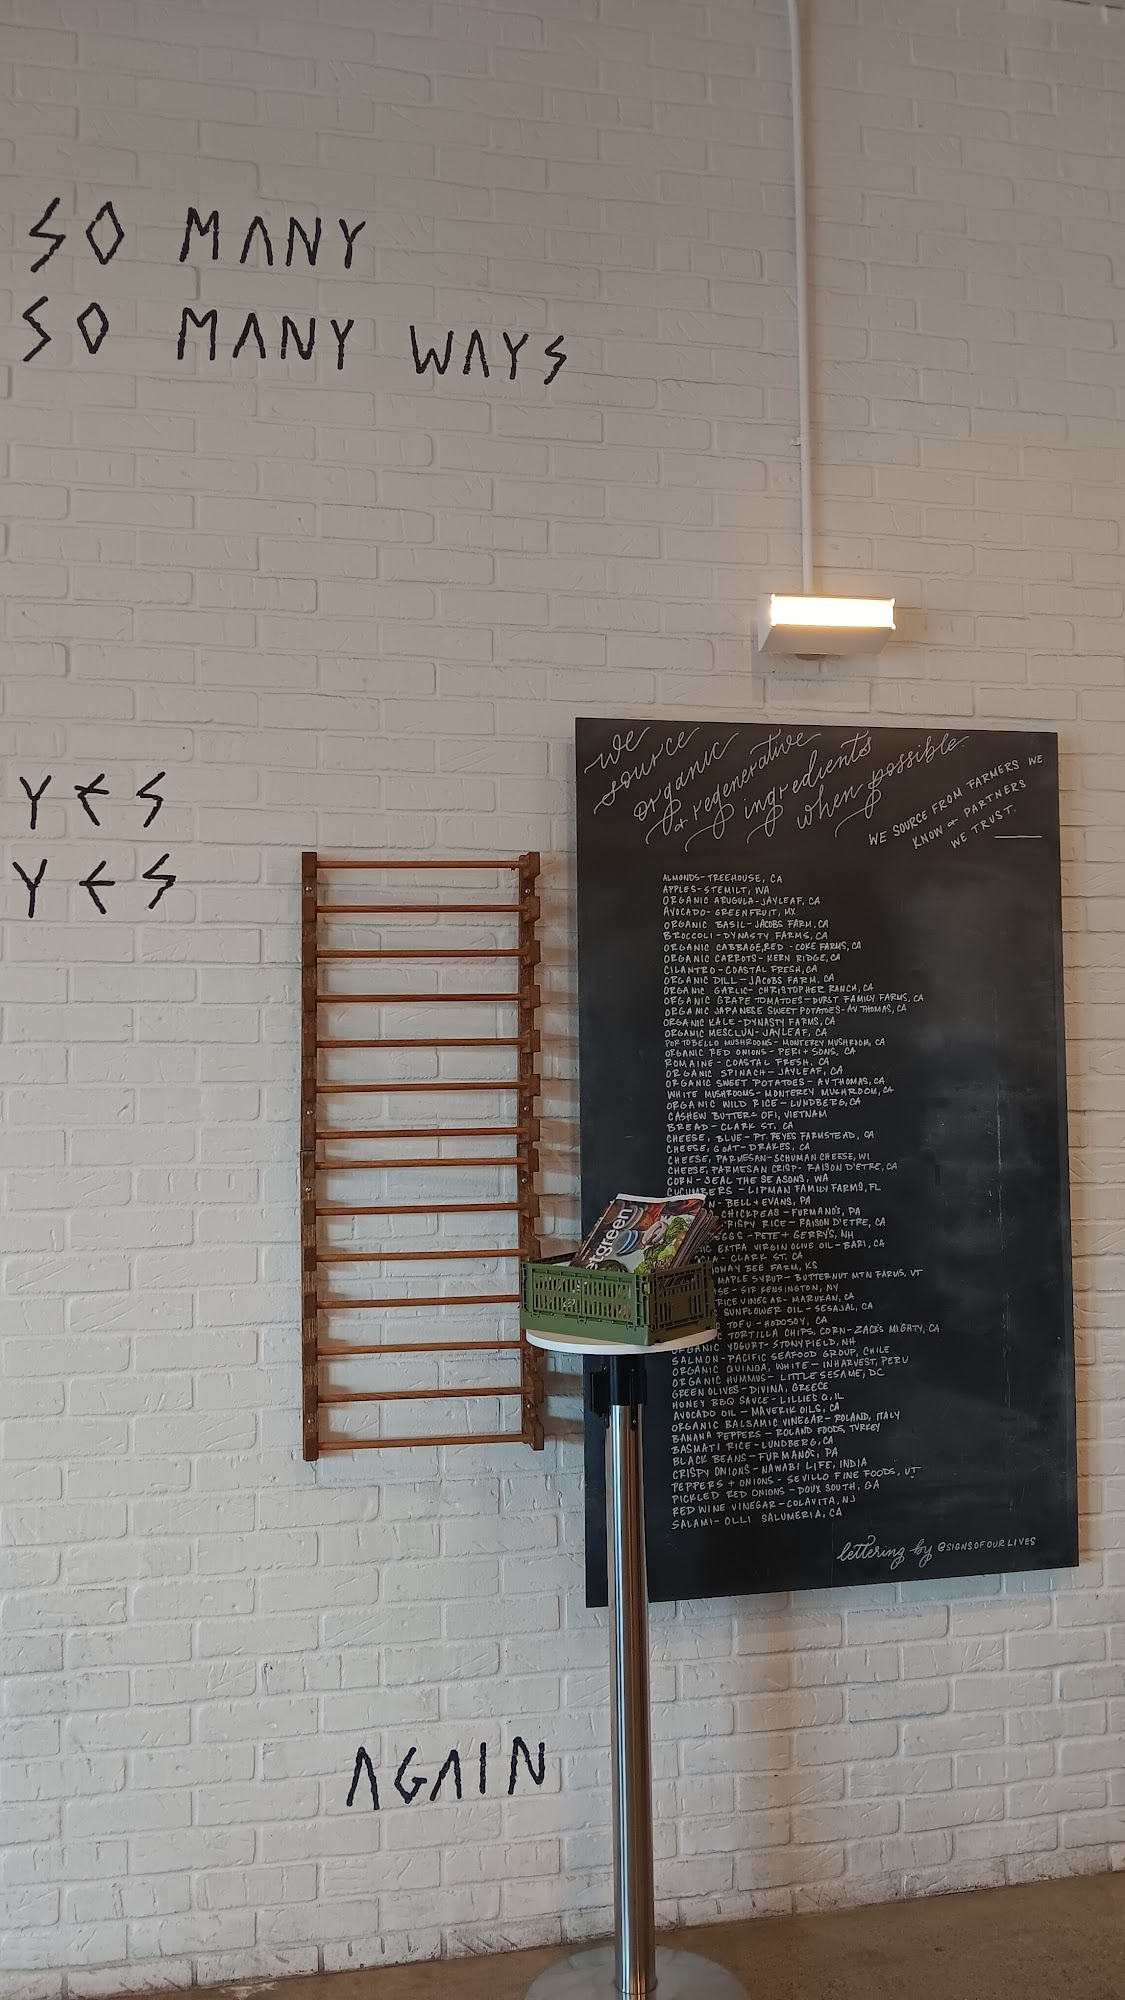 SO MANY
SO MANY WAYS
YES
YES
AGAIN
we
source
organic
+ regenerative
ingredients
when possible.
WE SOURCE FROM FARMERS WE
KNOW + PARTNERS
WE TRUST.
ALMONDS-TREEHOUSE, CA
APPLES-STEMILT, WA
ORGANIC ARUGULA-JAYLEAF, CA
AVOCADO-GREENFRUIT, MX
ORGANIC BASIL-JACOBS FARM, CA
BROCCOLI-DYNASTY FARMS, CA
ORGANIC CABBAGE,RED -COKE FARMS, CA
ORGANIC CARROTS-KERN RIDGE, CA
CILANTRO-COASTAL FRESH, CA
ORGANIC DILL-JACOBS FARM, CA
ORGANIC GARLIC-CHRISTOPHER RANCH, CA
ORGANIC GRAPE TOMATOES-DURST FAMILY FARMS, CA
ORGANIC JAPANESE SWEET POTATOES-AV THOMAS, CA
ORGANIC KALE-DYNASTY FARMS, CA
ORGANIC MESCLUN-JAYLEAF, CA
PORTOBELLO MUSHROOMS-MONTEREY MUSHROOM, CA
ORGANIC RED ONIONS-PERI+SONS, CA
ROMAINE-COASTAL FRESH, CA
ORGANIC SPINACH-JAYLEAF, CA
ORGANIC SWEET POTATOES-AV THOMAS, CA
WHITE MUSHROOMS-MONTEREY MUSHROOM, CA
ORGANIC WILD RICE-LUNDBERG, CA
CASHEW BUTTER-OFI, VIETNAM
BREAD-CLARK ST. CA
CHEESE, BLUE-PT. REYES FARMSTEAD, CA
CHEESE, GOAT-DRAKES, CA
CHEESE, PARMESAN-SCHUMAN CHEESE, WI
CHEESE, PARMESAN CRISP-RAISON D'ETRE, CA
CORN-SEAL THE SEASONS, WA
CUCUMBERS-LIPMAN FAMILY FARMS, FL
N-BELL+EVANS, PA
CHICKPEAS-FURMANO'S, PA
RISPY RICE-RAISON D'ETRE, CA
GGS-PETE+GERRY'S, NH
IC EXTRA VIRGIN OLIVE OIL-BARI, CA
CLARK ST. CA
OWAY BEE FARM, KS
MAPLE SYRUP-BUTTERNUT MTN FARMS, VT
SE-SIR KENSINGTON, NY
RICE VINEGAR-MARUKAN, CA
C SUNFLOWER OIL-SESAJAL, CA
C TOFU-HODOSOY, CA
C TORTILLA CHIPS, CORN-ZACK'S MIGHTY, CA
ORGANIC YOGURT-STONYFIELD, NH
SALMON-PACIFIC SEAFOOD GROUP, CHILE
ORGANIC QUINOA, WHITE-INHARVEST, PERU
ORGANIC HUMMUS-LITTLE SESAME, DC
GREEN OLIVES-DIVINA, GREECE
HONEY BBQ SAUCE-LILLIE'S Q, IL
AVOCADO OIL-MAVERIK OILS, CA
ORGANIC BALSAMIC VINEGAR-ROLAND, ITALY
BANANA PEPPERS-ROLAND FOODS, TURKEY
BASMATI RICE-LUNDBERG, CA
BLACK BEANS-FURMANO'S, PA
CRISPY ONIONS-NAWABI LIFE, INDIA
PEPPERS + ONIONS-SEVILLO FINE FOODS, UT
PICKLED RED ONIONS-DOUX SOUTH, GA
RED WINE VINEGAR-COLAVITA, NJ
SALAMI-OLLI SALUMERIA, CA
lettering by @SIGNSOFOURLIVES
etgreen